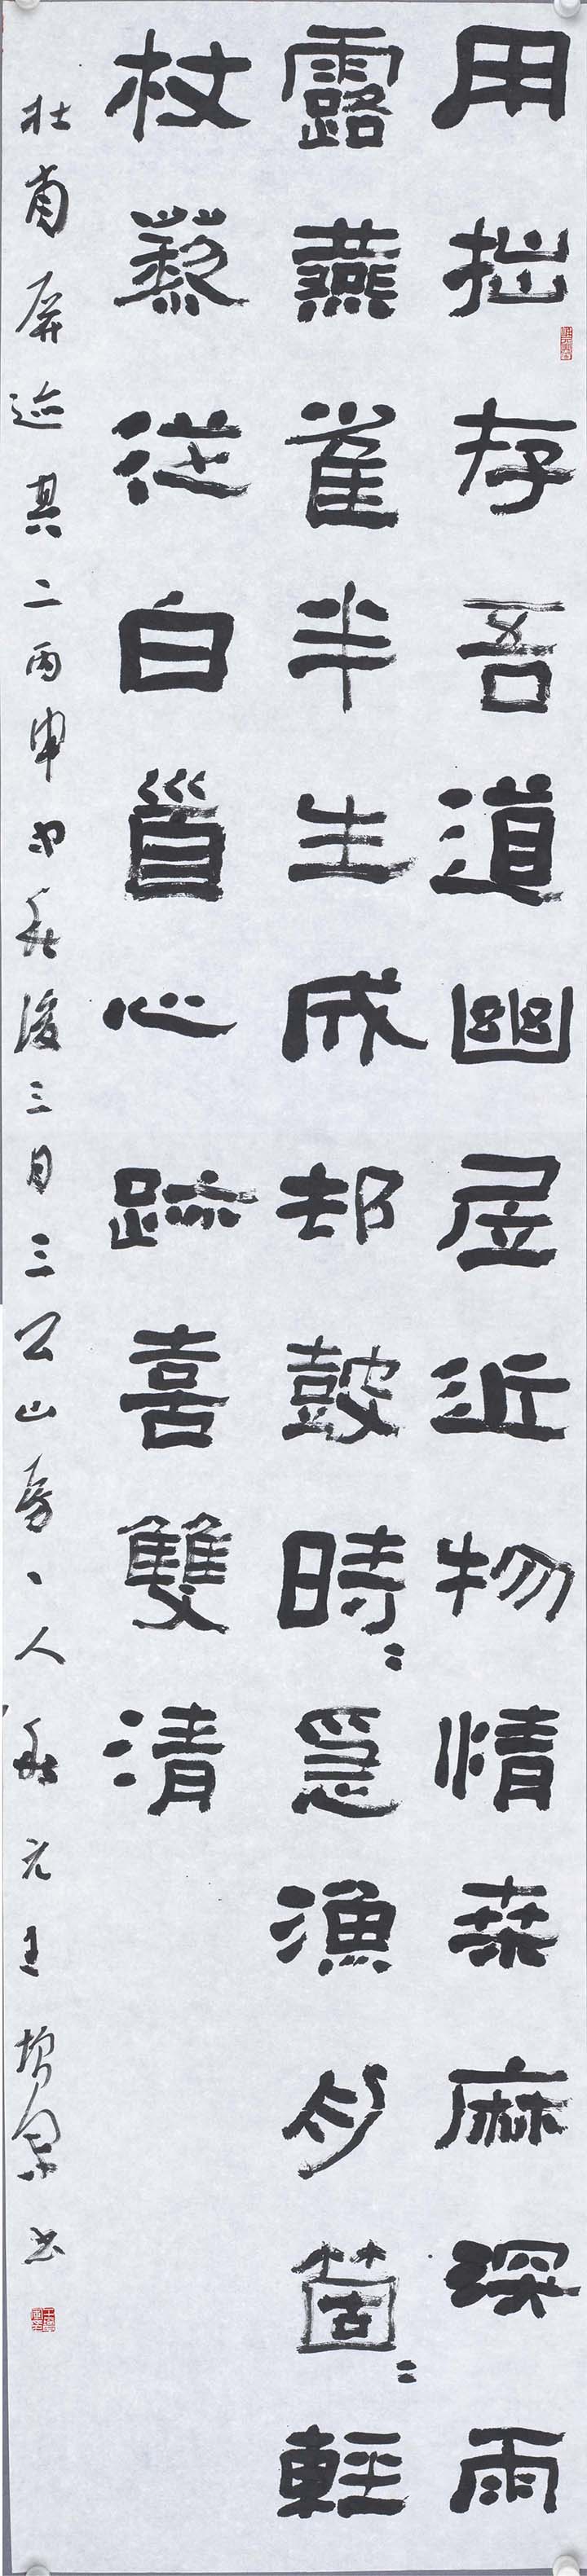 用拙存吾道幽居近物情桑麻深雨
露燕雀半生成邨鼓時〻急漁舟箇〻輕
杖藜從白首心跡喜雙清
杜甫屏迹其二丙申中秋後三日三公山房〻人秋元王增书